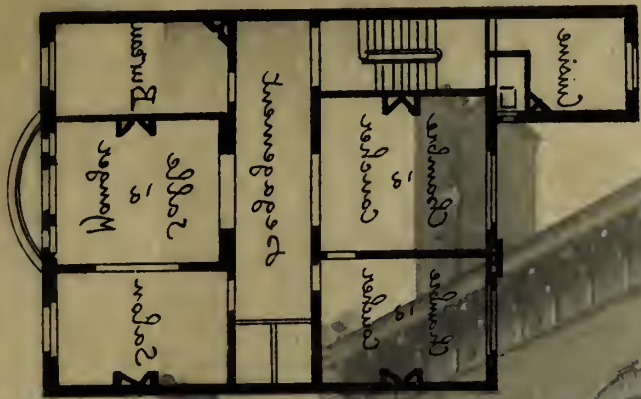 Bureau
Salle
à
Manger
Salon
Degagement
Chambre
à
Coucher
Chambre
à
Coucher
Cuisine